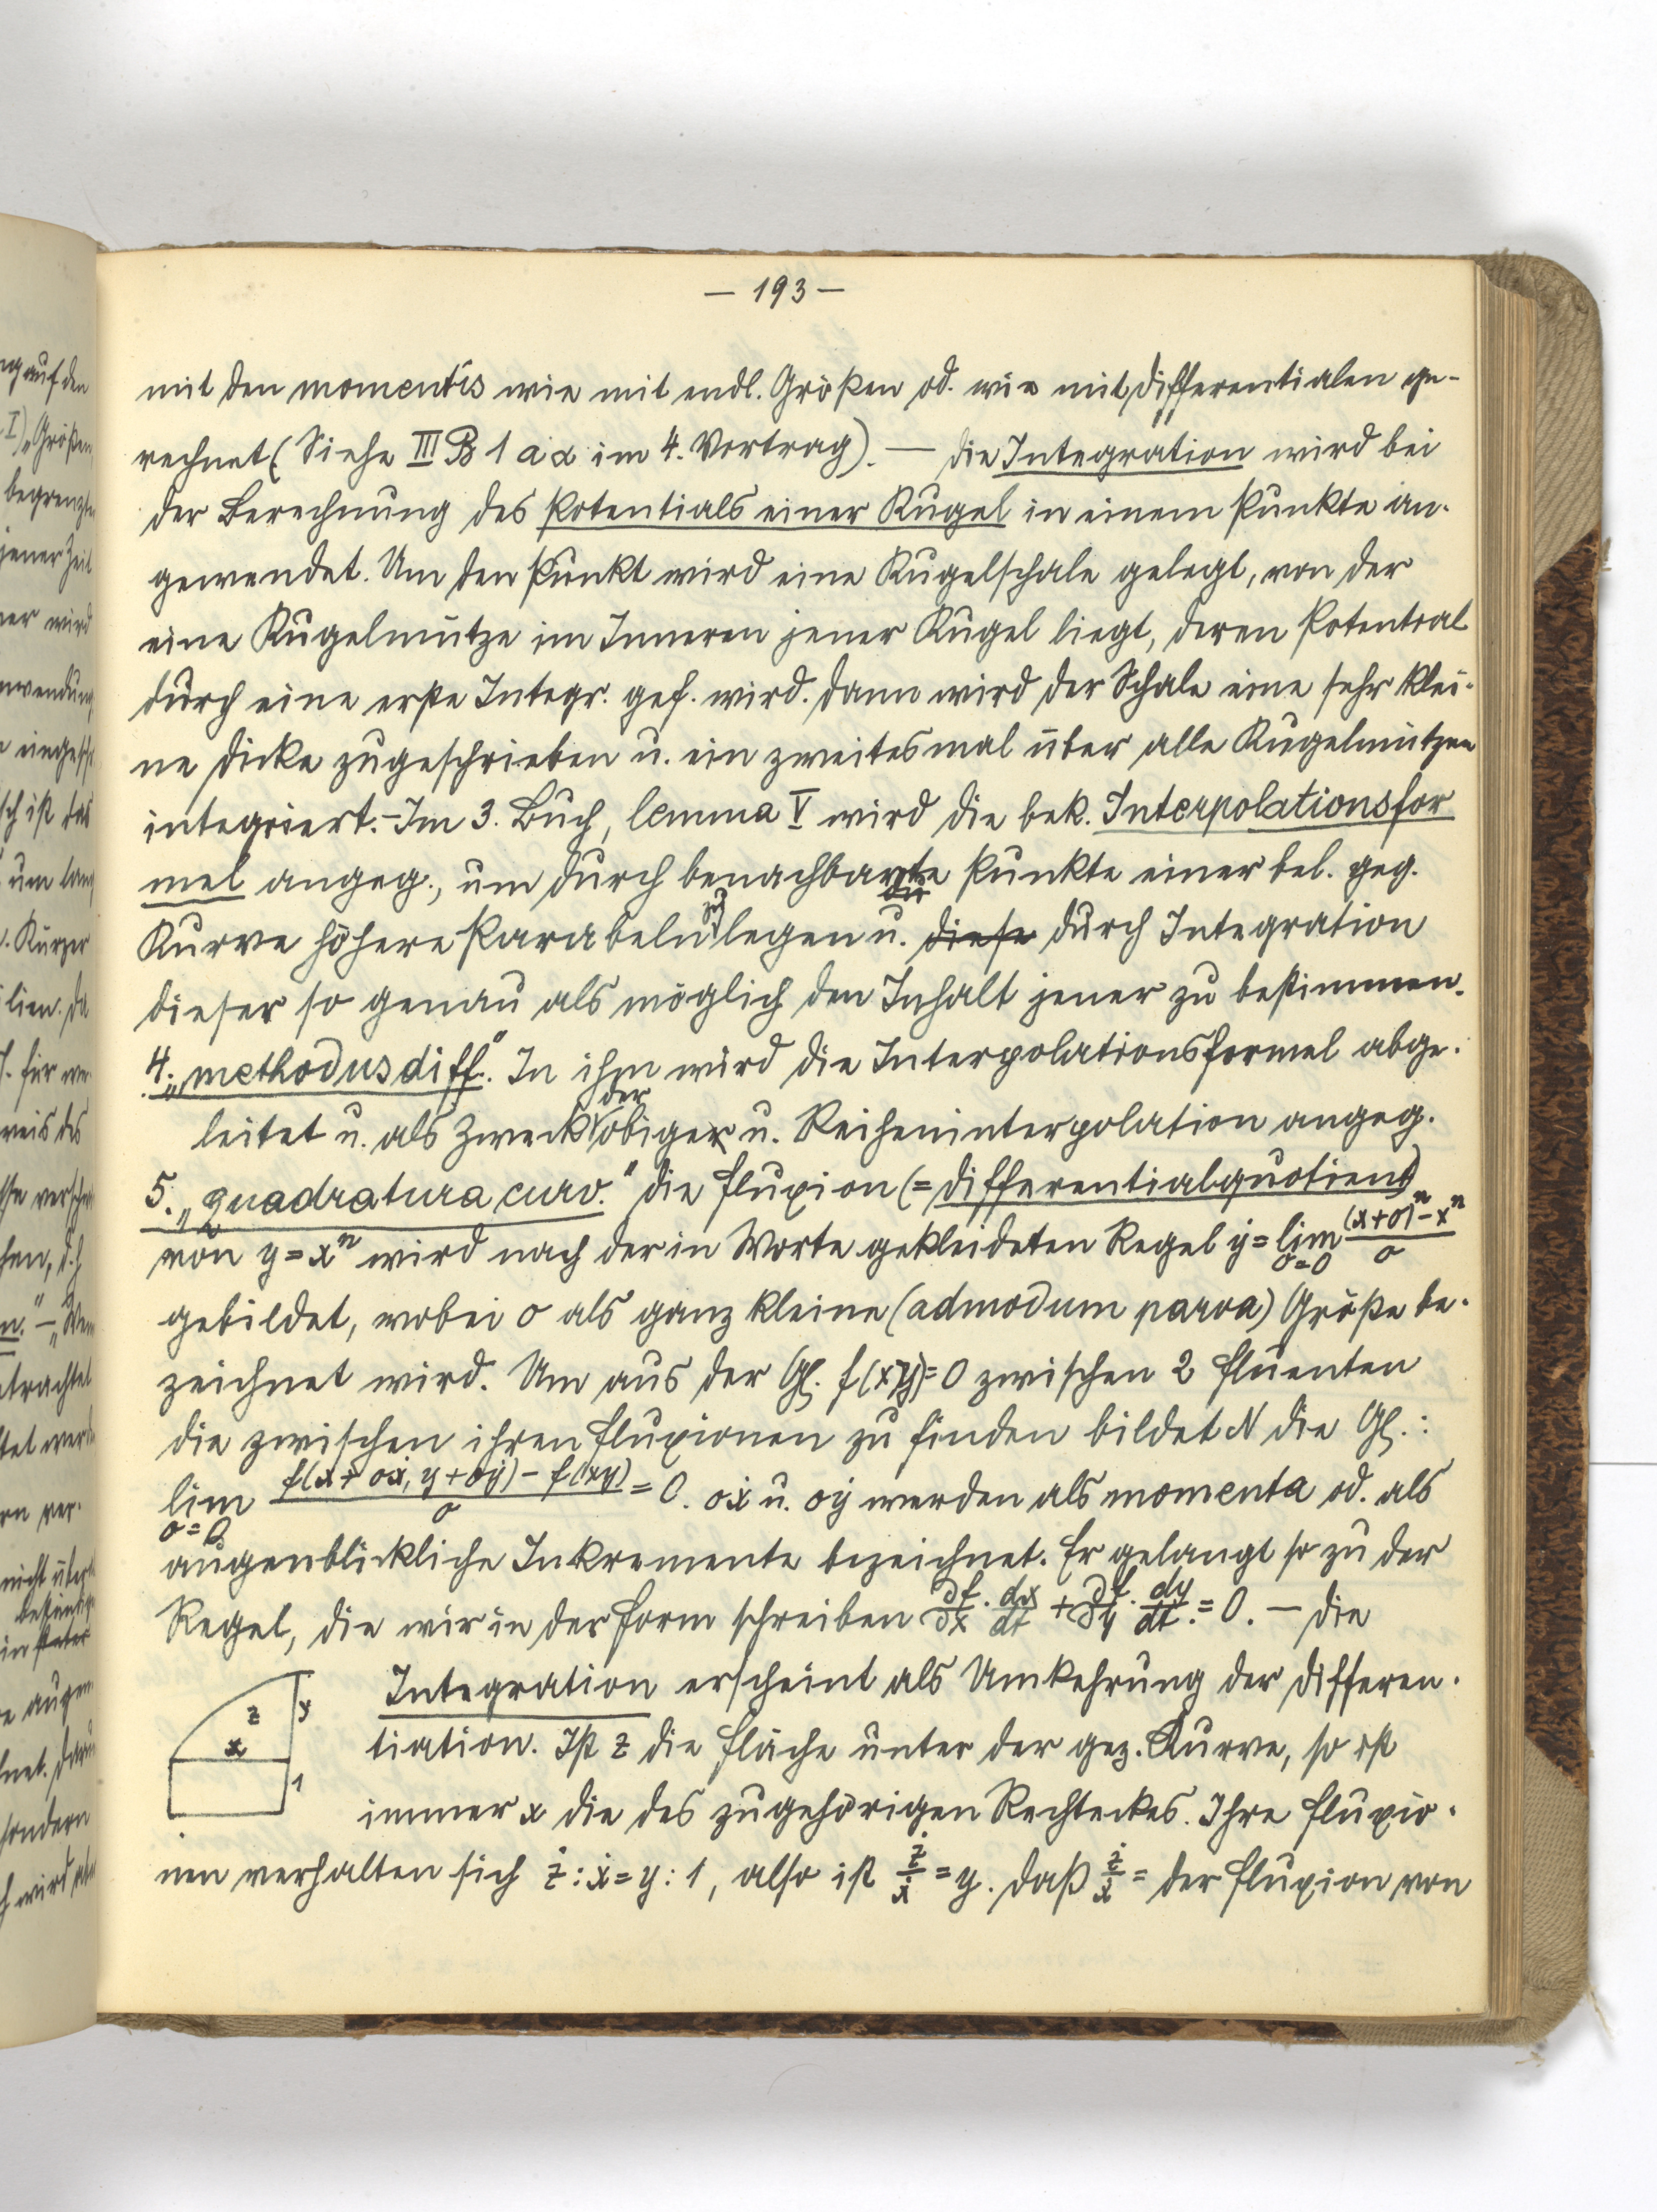 — 193 —
mit den momentis wie mit endl. Größen od. wie mit Differentialen ge-
rechnet (Siehe III B 1 a α im 4. Vortrag). — Die Integration wird bei
der Berechnung des Potentials einer Kugel in einem Punkte an-
gewendet. Um den Punkt wird eine Kugelschale gelegt, von der
eine Kugelmütze im Inneren jener Kugel liegt, deren Potential
durch eine erste Integr. gef. wird. Dann wird der Schale eine sehr klei-
ne Dicke zugeschrieben u. ein zweitesmal über alle Kugelmützen
integriert. – Im 3. Buch, lemma V wird die bek. Interpolationsfor
mel angeg., um durch benachbarte Punkte einer bel. geg.
Kurve höhere Parabeln zu legen u. diese durch Integration
dieser so genau als möglich den Inhalt jener zu bestimmen.
4. „methodus diff." In ihm wird die Interpolationsformel abge-
leitet u. als Zweck der obigen u. Reiheninterpolation angeg.
5. „quadratura curv." Die Fluxion (= Differentialquotient)
von y = xⁿ wird nach der in Worte gekleideten Regel ẏ = lim o=0 ((x+o)ⁿ - xⁿ)/o
gebildet, wobei o als ganz kleine (admodum parva) Größe be-
zeichnet wird. Um aus der Gl. f(x,y)=0 zwischen 2 Fluenten
die zwischen ihren Fluxionen zu finden bildet N die Gl.:
lim o=0 (f(x+oẋ, y+oẏ) - f(xy))/o = 0. oẋ u. oẏ werden als momenta od. als
augenblickliche Inkremente bezeichnet. Er gelangt so zu der
Regel, die wir in der Form schreiben ∂f/∂x · dx/dt + ∂f/∂y · dy/dt = 0. — Die
Integration erscheint als Umkehrung der Differen-
tiation. Ist z die Fläche unter der gez. Kurve, so ist
immer x die des zugehörigen Rechteckes. Ihre Fluxio-
nen verhalten sich ż : ẋ = y : 1, also ist ż/ẋ = y. Daß ż/ẋ = der Fluxion von
z
y
x
1